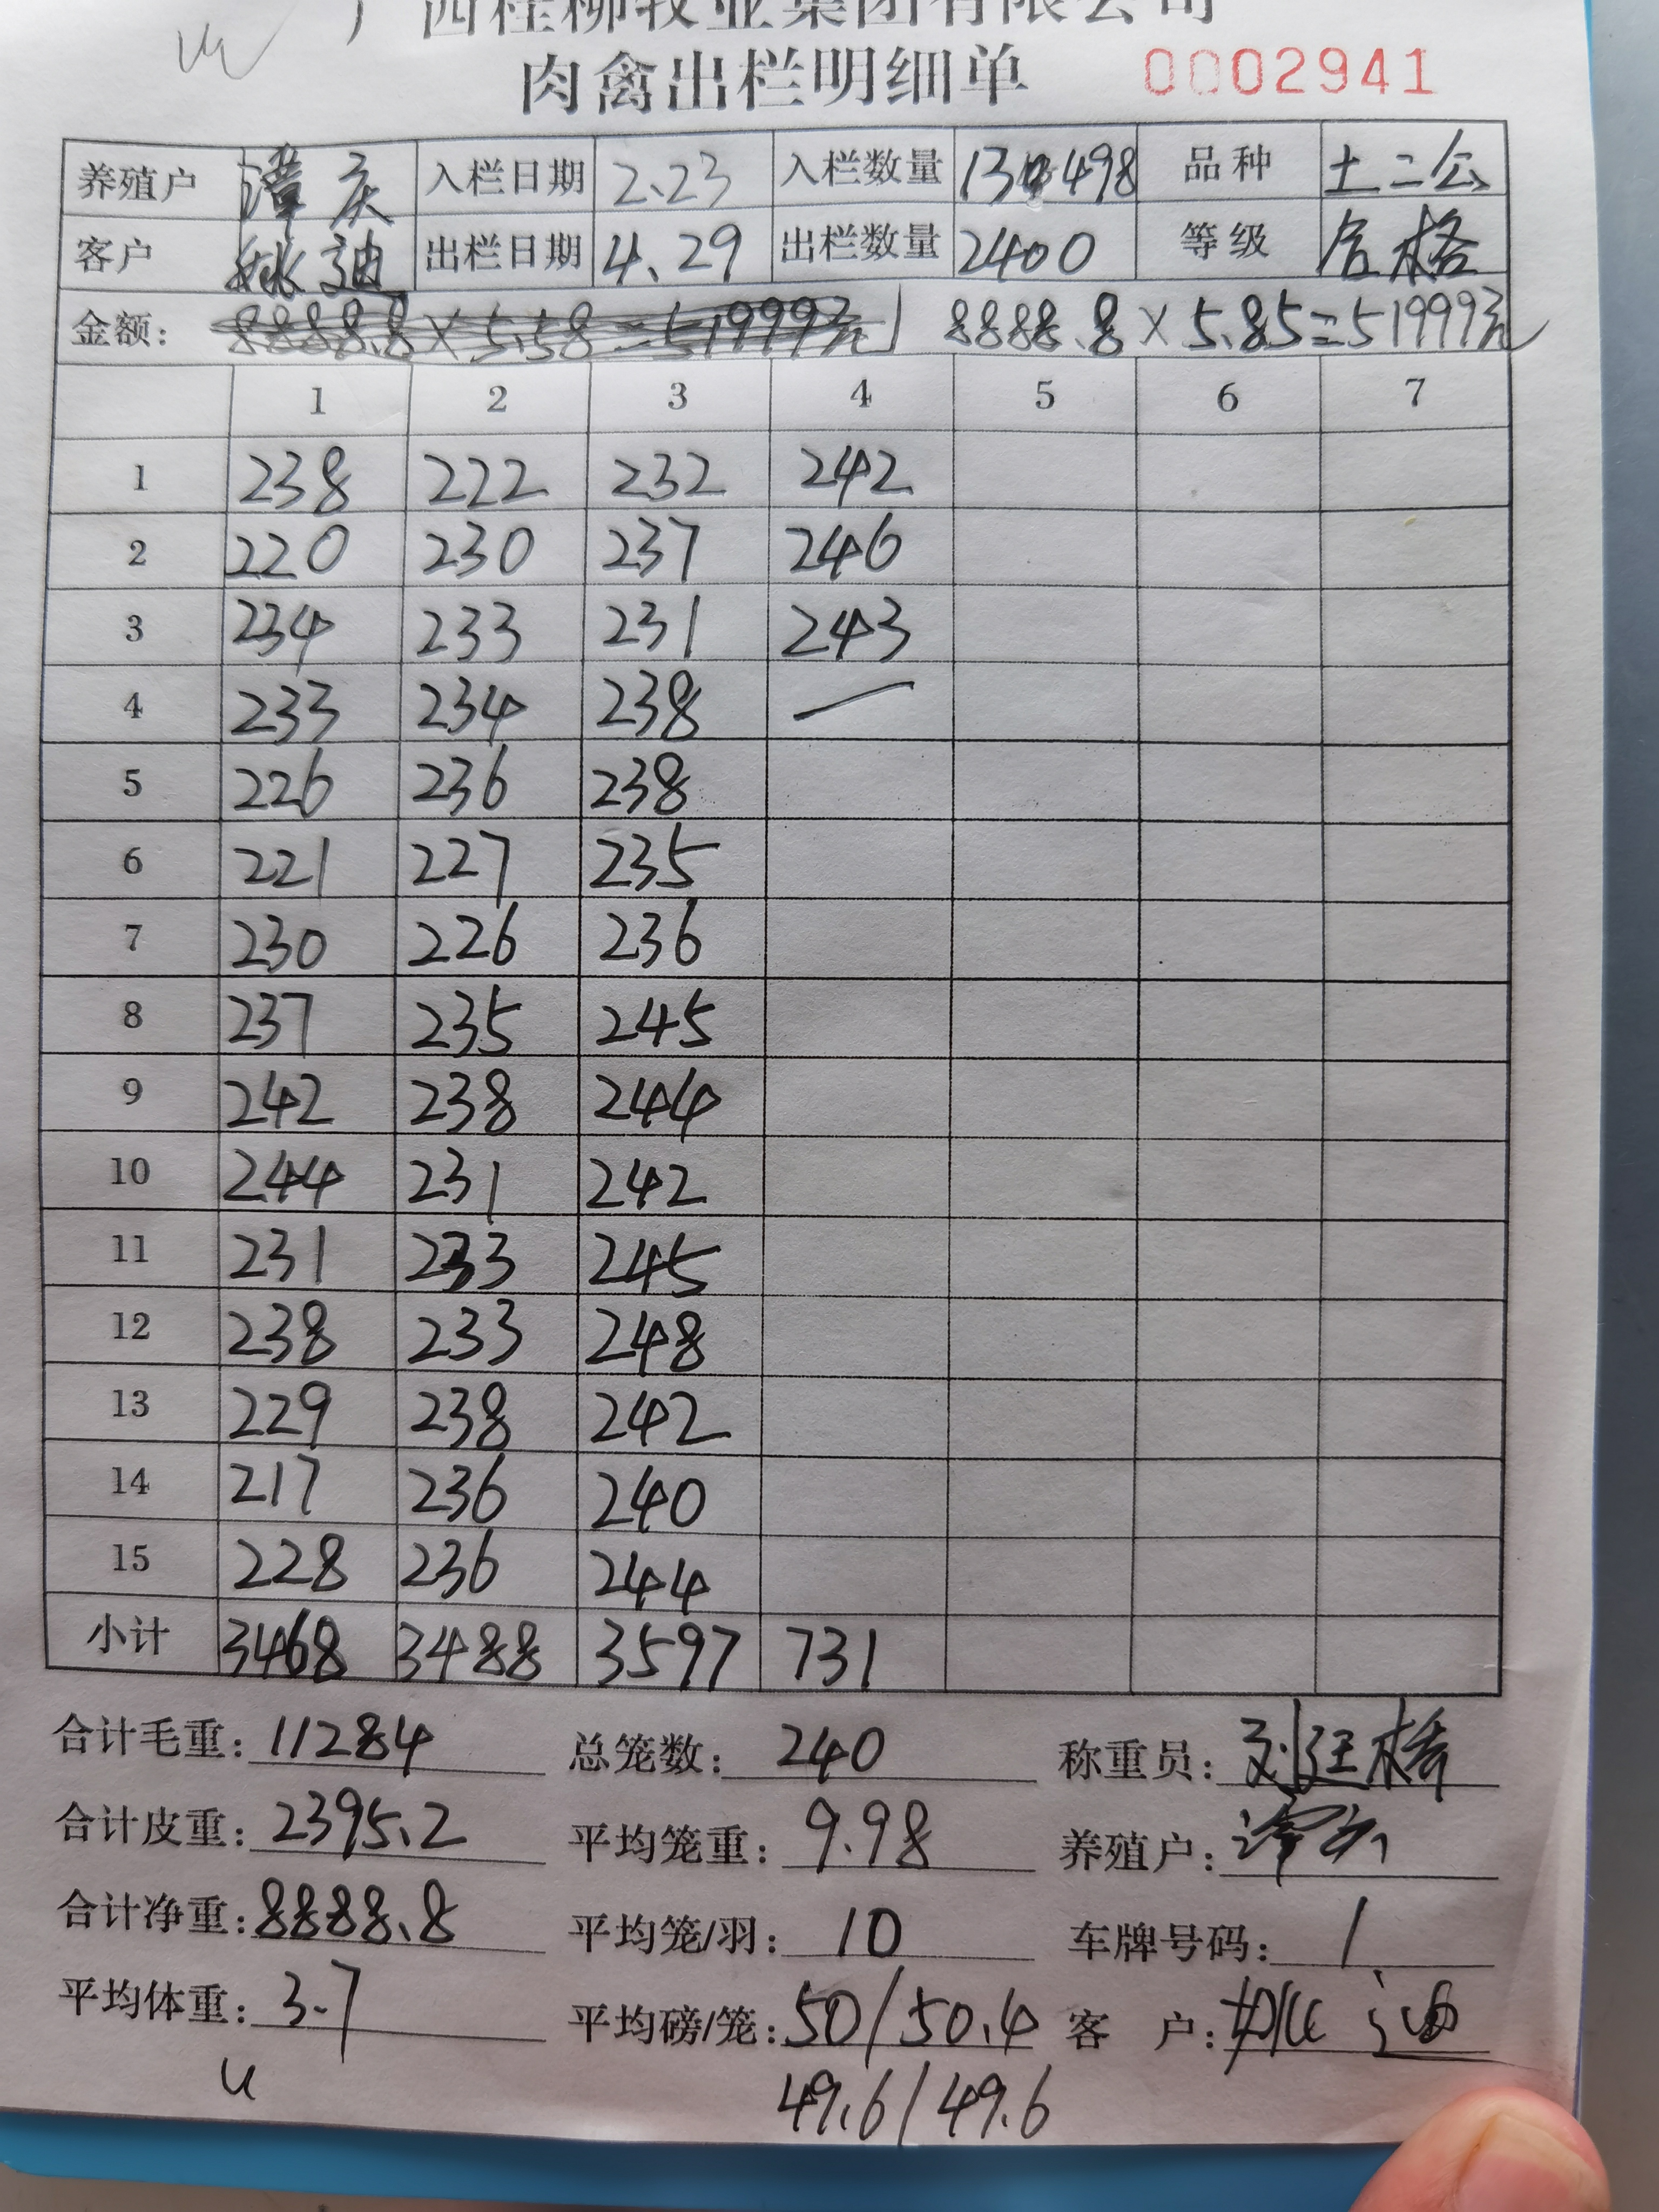 广西桂柳牧业集团有限公司
肉禽出栏明细单 0002941
养殖户 潭庆 入栏日期 2.23 入栏数量 13498 品种 土二公
客户 姚迪 出栏日期 4.29 出栏数量 2400 等级 合格
金额: 8888.8×5.58=51999元 8888.8×5.85=51999元
1 2 3 4 5 6 7
1 238 222 232 242
2 220 230 237 246
3 234 233 231 243
4 233 234 238 —
5 226 236 238
6 221 227 235
7 230 226 236
8 237 235 245
9 242 238 244
10 244 231 242
11 231 233 245
12 238 233 248
13 229 238 242
14 217 236 240
15 228 236 244
小计 3468 3488 3597 731
合计毛重: 11284 总笼数: 240 称重员:
合计皮重: 2395.2 平均笼重: 9.98 养殖户:
合计净重: 8888.8 平均笼/羽: 10 车牌号码: 1
平均体重: 3.7 平均磅/笼: 50/50.4 客 户:
49.6/49.6